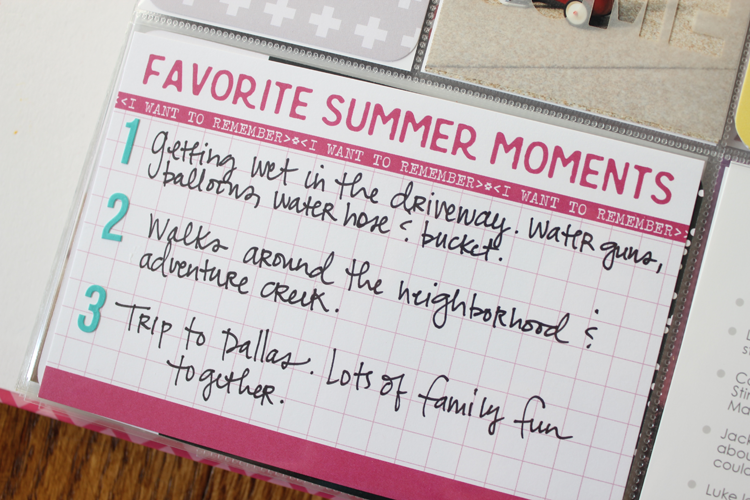 FAVORITE SUMMER MOMENTS
<I WANT TO REMEMBER>*<I WANT TO REMEMBER>*<I WANT TO REMEMBER>
1 Getting wet in the driveway. Water guns,
balloons, water hose & bucket.
2 Walks around the neighborhood &
adventure creek.
3 Trip to Dallas. Lots of family fun
together.
ME
Jack
about
could
Luke